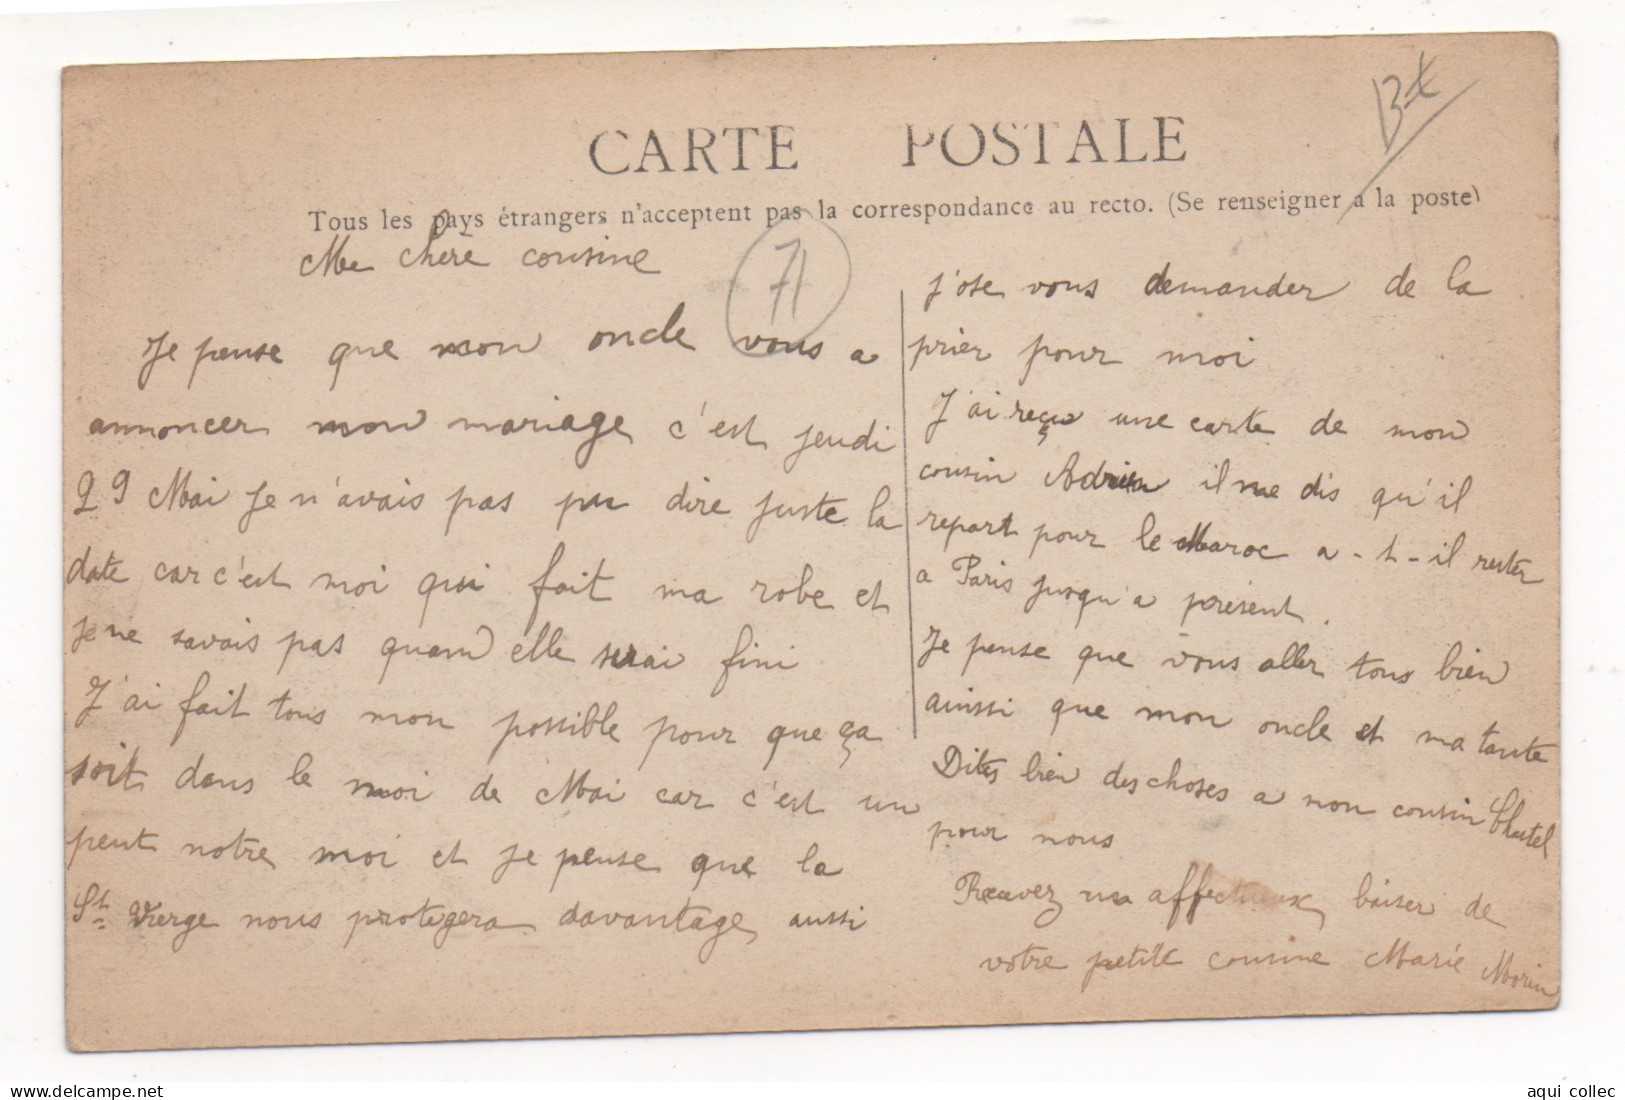 Bx
CARTE POSTALE
Tous les pays étrangers n'acceptent pas la correspondance au recto. (Se renseigner à la poste)
71
Ma chère cousine
Je pense que mon oncle vous a
annoncer mon mariage c'est jeudi
29 Mai Je n'avais pas pu dire juste la
date car c'est moi qui fait ma robe et
je ne savais pas quand elle serai fini
J'ai fait tous mon possible pour que ça
soit dans le moi de Mai car c'est un
peut notre moi et je pense que la
St Vierge nous protegera davantage, aussi
j'ose vous demander de la
prier pour moi
J'ai reçu une carte de mon
cousin Adrien il me dis qu'il
repart pour le Maroc a-t-il rester
a Paris jusqu'a présent.
Je pense que vous aller tous bien
ainsi que mon oncle et ma tante
Dites bien des choses a mon cousin Chatel
pour nous
Recevez un affectueux baiser de
votre petite cousine Marie Morin
aqui collec